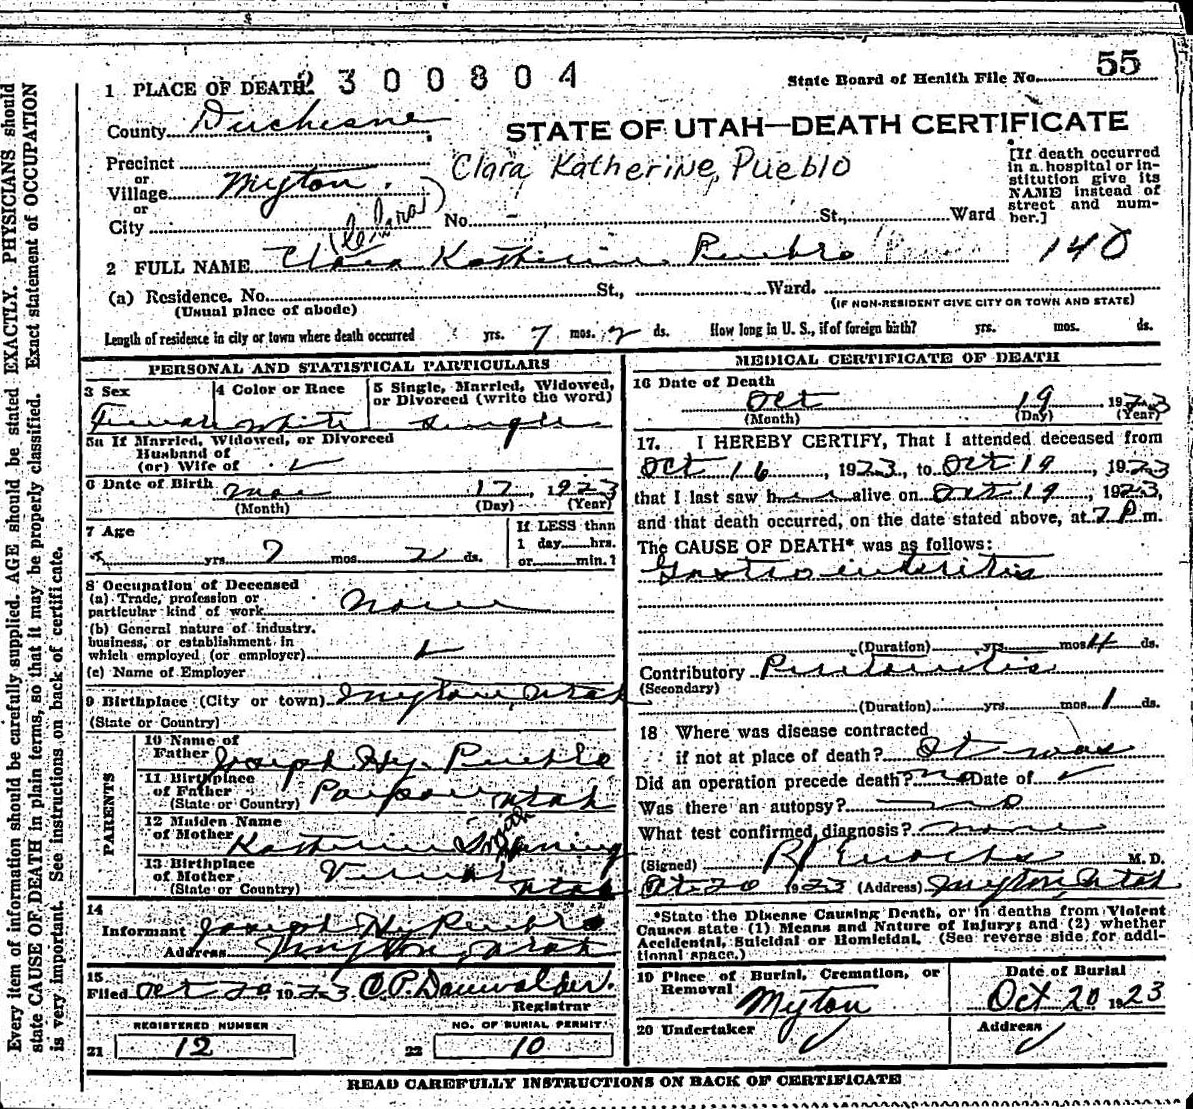 1 PLACE OF DEATH 2300804
State Board of Health File No. 55
County Duchesne
STATE OF UTAH—DEATH CERTIFICATE
Precinct
or
Village Myton
or
City
Clara Katherine Pueblo
[If death occurred
in a hospital or in-
stitution give its
NAME instead of
street and num-
ber.]
No. St., Ward
2 FULL NAME Clara Katherine Pueblo
140
(a) Residence. No. St., Ward.
(Usual place of abode)
(IF NON-RESIDENT GIVE CITY OR TOWN AND STATE)
Length of residence in city or town where death occurred yrs. 7 mos. 2 ds. How long in U. S., if of foreign birth? yrs. mos. ds.
PERSONAL AND STATISTICAL PARTICULARS
3 Sex
4 Color or Race
5 Single, Married, Widowed,
or Divorced (write the word)
Female White Single
5a If Married, Widowed, or Divorced
Husband of
(or) Wife of
6 Date of Birth Mar 17, 1923
(Month) (Day) (Year)
7 Age
If LESS than
1 day hrs.
or min.?
yrs. 7 mos. 2 ds.
8 Occupation of Deceased
(a) Trade, profession or
particular kind of work None
(b) General nature of industry,
business, or establishment in
which employed (or employer)
(c) Name of Employer
9 Birthplace (City or town) Myton, Utah
(State or Country)
PARENTS
10 Name of
Father Joseph Hy. Pueblo
11 Birthplace
of Father
(State or Country) Utah
12 Maiden Name
of Mother Katherine
13 Birthplace
of Mother Vernal
(State or Country) Utah
14
Informant Joseph Hy Pueblo
Address Myton, Utah
15
Filed Oct 20 1923 O.P. Dauwalder.
Registrar
REGISTERED NUMBER
21 12
NO. OF BURIAL PERMIT
22 10
MEDICAL CERTIFICATE OF DEATH
16 Date of Death
Oct 19 1923
(Month) (Day) (Year)
17. I HEREBY CERTIFY, That I attended deceased from
Oct 16, 1923, to Oct 19, 1923
that I last saw her alive on Oct 19, 1923,
and that death occurred, on the date stated above, at 7 P m.
The CAUSE OF DEATH* was as follows:
Gastro enteritis
(Duration) yrs mos 4 ds.
Contributory
(Secondary)
(Duration) yrs. mos. 1 ds.
18 Where was disease contracted
if not at place of death? It was
Did an operation precede death? no Date of
Was there an autopsy? no
What test confirmed diagnosis? none
(Signed) R J Enochs M. D.
Oct 20 1923 (Address) Myton Utah
*State the Disease Causing Death, or in deaths from Violent
Causes state (1) Means and Nature of Injury; and (2) whether
Accidental, Suicidal or Homicidal. (See reverse side for addi-
tional space.)
19 Place of Burial, Cremation, or
Removal
Myton
Date of Burial
Oct 20 1923
20 Undertaker
Address
READ CAREFULLY INSTRUCTIONS ON BACK OF CERTIFICATE
Every item of information should be carefully supplied. AGE should be stated EXACTLY. PHYSICIANS should
state CAUSE OF DEATH in plain terms, so that it may be properly classified. Exact statement of OCCUPATION
is very important. See instructions on back of certificate.